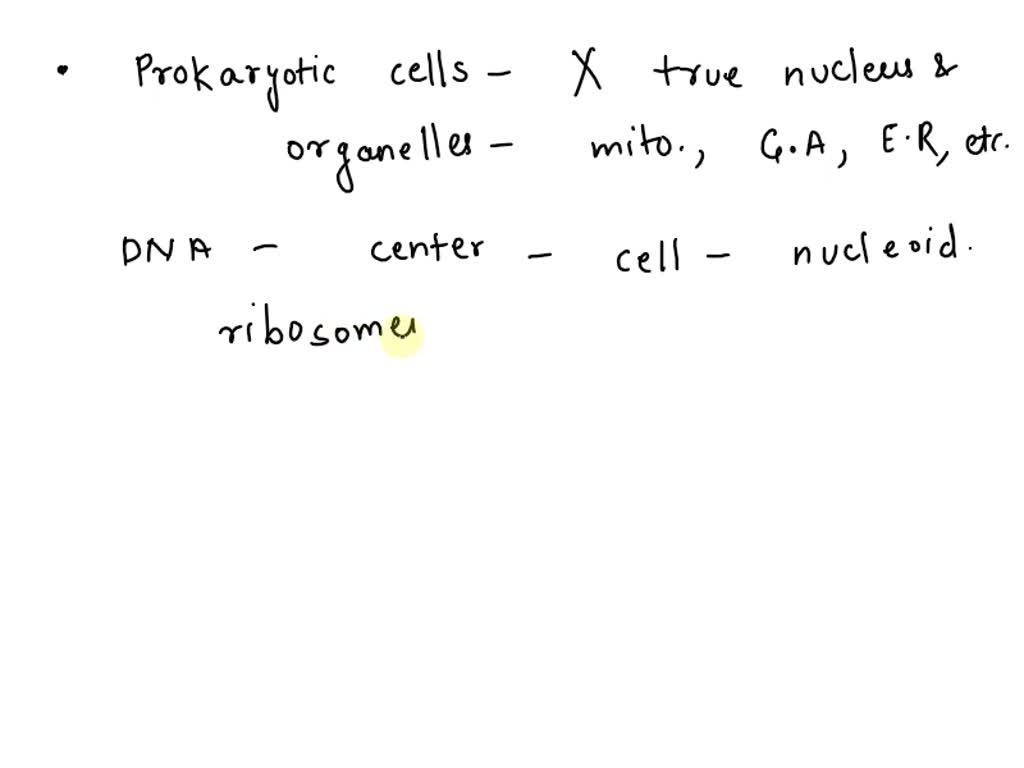 • Prokaryotic cells - X true nucleus &
organelles - mito., G.A, E.R, etc.
DNA - center - cell - nucleoid.
ribosomes